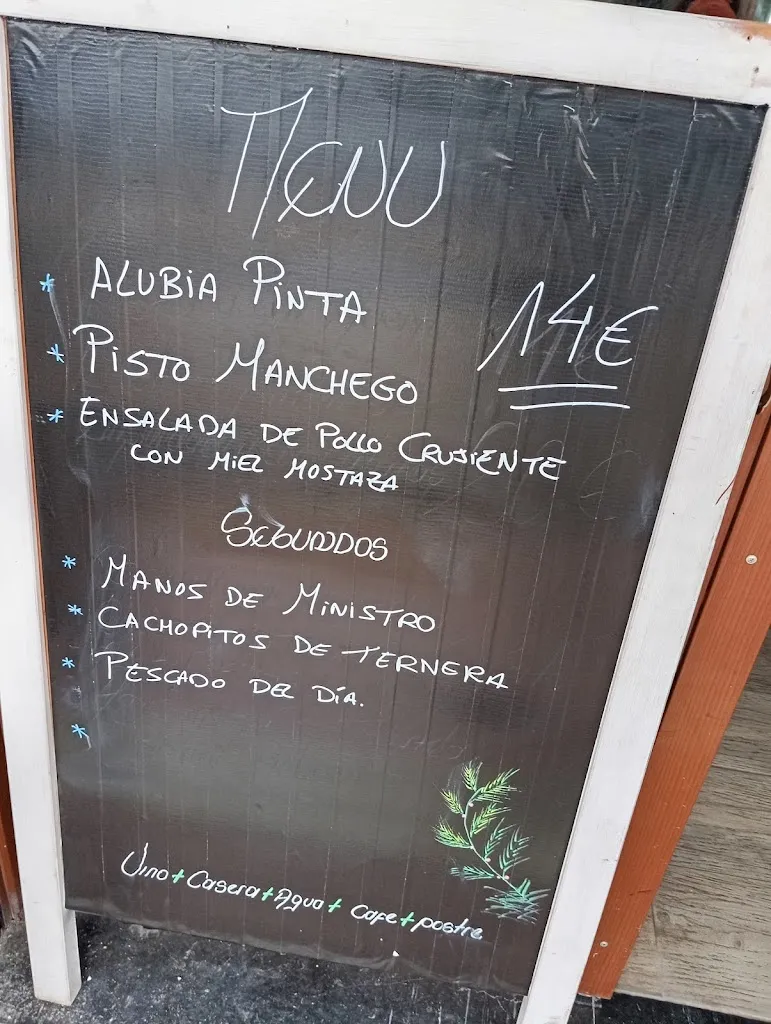 MENU
* ALUBIA PINTA
14€
* PISTO MANCHEGO
* ENSALADA DE POLLO CRUJIENTE
CON MIEL MOSTAZA
SEGUNDOS
* MANOS DE MINISTRO
* CACHOPITOS DE TERNERA
* PESCADO DEL DÍA.
*
Vino + Casera + Agua + Cafe + postre